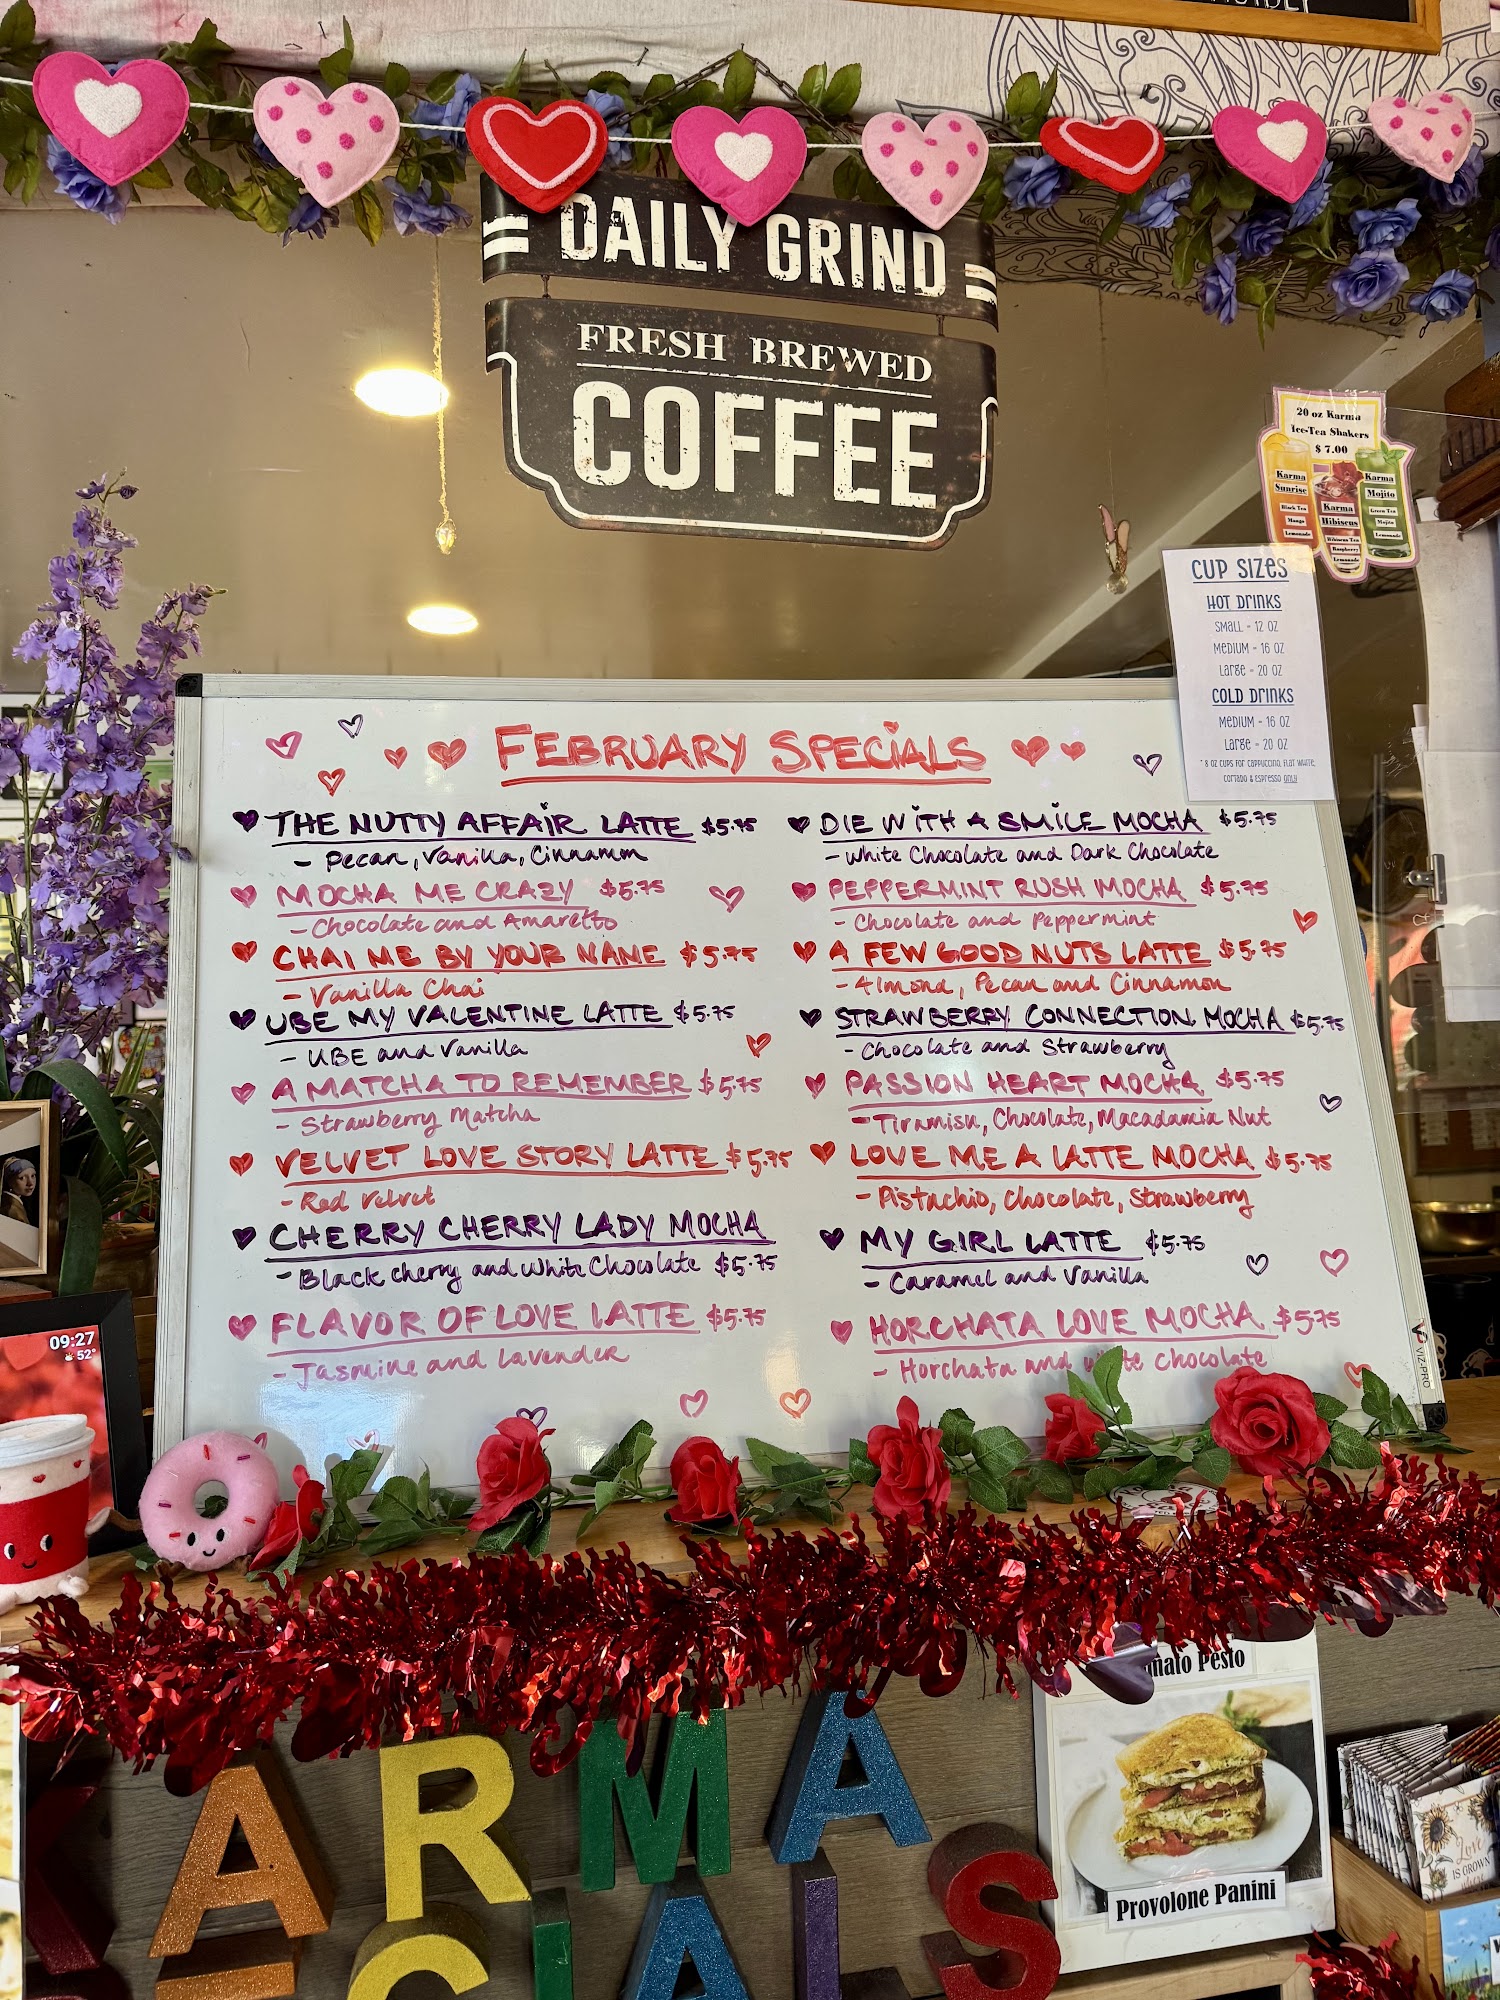 DAILY GRIND
FRESH BREWED
COFFEE
20 oz Karma
Ice-Tea Shakers
$ 7.00
Karma
Sunrise
Black Tea
Mango
Lemonade
Karma
Hibiscus
Hibiscus Tea
Raspberry
Lemonade
Karma
Mojito
Green Tea
Mojito
Lemonade
CUP SIZES
HOT DRINKS
SMALL - 12 OZ
MEDIUM - 16 OZ
LARGE - 20 OZ
COLD DRINKS
MEDIUM - 16 OZ
LARGE - 20 OZ
* 8 OZ CUPS FOR CAPPUCCINO, FLAT WHITE,
CORTADO & ESPRESSO ONLY
FEBRUARY SPECIALS
THE NUTTY AFFAIR LATTE $5.75
- Pecan, Vanilla, Cinnamon
MOCHA ME CRAZY $5.75
- Chocolate and Amaretto
CHAI ME BY YOUR NAME $5.75
- Vanilla Chai
UBE MY VALENTINE LATTE $5.75
- UBE and Vanilla
A MATCHA TO REMEMBER $5.75
- Strawberry Matcha
VELVET LOVE STORY LATTE $5.75
- Red Velvet
CHERRY CHERRY LADY MOCHA
- Black cherry and White Chocolate $5.75
FLAVOR OF LOVE LATTE $5.75
- Jasmine and Lavender
DIE WITH A SMILE MOCHA $5.75
- White Chocolate and Dark Chocolate
PEPPERMINT RUSH MOCHA $5.75
- Chocolate and Peppermint
A FEW GOOD NUTS LATTE $5.75
- Almond, Pecan and Cinnamon
STRAWBERRY CONNECTION MOCHA $5.75
- Chocolate and Strawberry
PASSION HEART MOCHA $5.75
- Tiramisu, Chocolate, Macadamia Nut
LOVE ME A LATTE MOCHA $5.75
- Pistachio, Chocolate, Strawberry
MY GIRL LATTE $5.75
- Caramel and Vanilla
HORCHATA LOVE MOCHA $5.75
- Horchata and white chocolate
VIZ-PRO
09:27
52°
Pesto
Provolone Panini
KARMA
CIALS
Love
IS GROWN